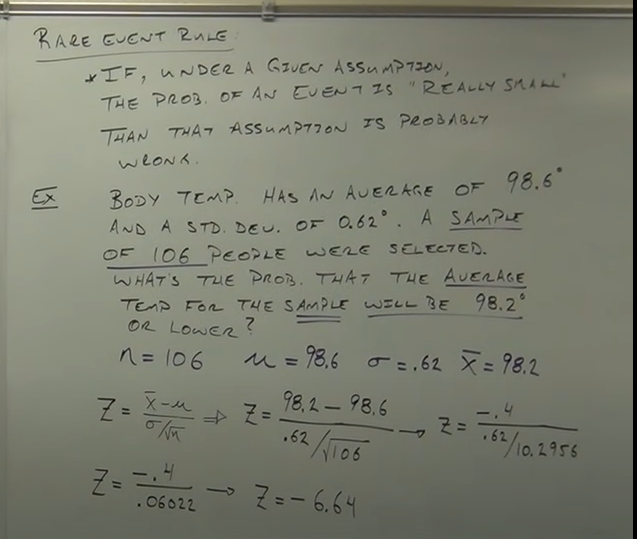 RARE EVENT RULE:
* IF, UNDER A GIVEN ASSUMPTION,
THE PROB. OF AN EVENT IS "REALLY SMALL"
THAN THAT ASSUMPTION IS PROBABLY
WRONG.
EX BODY TEMP. HAS AN AVERAGE OF 98.6°
AND A STD. DEV. OF 0.62°. A SAMPLE
OF 106 PEOPLE WERE SELECTED.
WHAT'S THE PROB. THAT THE AVERAGE
TEMP FOR THE SAMPLE WILL BE 98.2°
OR LOWER?
n = 106 μ = 98.6 σ = .62 x̄ = 98.2
Z = (x̄ - μ)/(σ/√n) ⇒ Z = (98.2 - 98.6)/(.62/√106) → Z = -.4/(.62/10.2956)
Z = -.4/.06022 → Z = -6.64